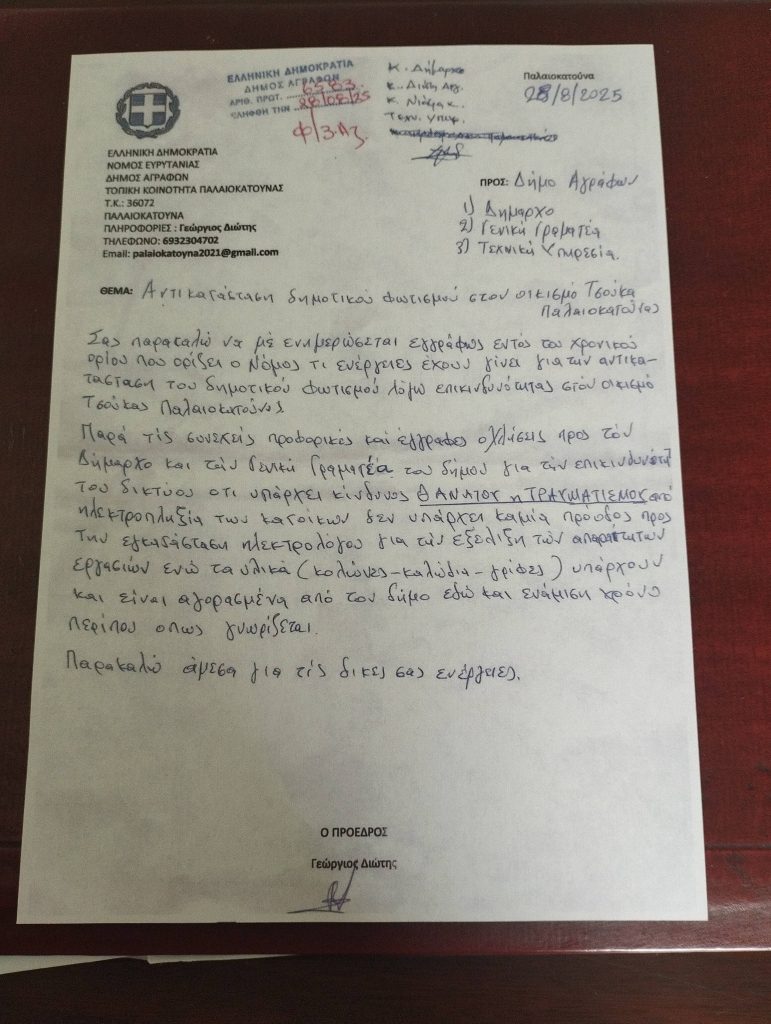 ΕΛΛΗΝΙΚΗ ΔΗΜΟΚΡΑΤΙΑ
ΔΗΜΟΣ ΑΓΡΑΦΩΝ
ΑΡΙΘ. ΠΡΩΤ. 6583
ΕΛΗΦΘΗ ΤΗΝ 28/08/25
Φ/3.Αζ
Κ. Δήμαρχο
Κ. Δ/ντη
Κ.
Τεχν. Υπηρ.
Παλαιοκατούνα
28/8/2025
ΕΛΛΗΝΙΚΗ ΔΗΜΟΚΡΑΤΙΑ
ΝΟΜΟΣ ΕΥΡΥΤΑΝΙΑΣ
ΔΗΜΟΣ ΑΓΡΑΦΩΝ
ΤΟΠΙΚΗ ΚΟΙΝΟΤΗΤΑ ΠΑΛΑΙΟΚΑΤΟΥΝΑΣ
Τ.Κ.: 36072
ΠΑΛΑΙΟΚΑΤΟΥΝΑ
ΠΛΗΡΟΦΟΡΙΕΣ : Γεώργιος Διώτης
ΤΗΛΕΦΩΝΟ: 6932304702
Email: palaiokatoyna2021@gmail.com
ΠΡΟΣ: Δήμο Αγράφων
1) Δήμαρχο
2) Γενική Γραματέα
3) Τεχνική Υπηρεσία.
ΘΕΜΑ: Αντικατάσταση δημοτικού φωτισμού στον οικισμό Τσούκα
Παλαιοκατούνας
Σας παρακαλώ να μέ ενημερώσεται εγγράφως εντός του χρονικού
ορίου που ορίζει ο Νόμος τι ενέργειες έχουν γίνει για την αντικα-
τασταση του δημοτικού φωτισμού λόγω επικινδυνότητας στόν οικισμό
Τσούκας Παλαιοκατούνας.
Παρά τίς συνεχείς προφορικές και έγγραφες οχλήσεις προς τόν
Δήμαρχο και τών Γενική Γραματέα του δήμου για τήν επικινδυνότητα
του δικτύου οτι υπάρχει κίνδυνος ΘΑΝΑΤΟΥ η ΤΡΑΥΜΑΤΙΣΜΟΥ από
ηλεκτροπληξία των κατοίκων δεν υπάρχει καμία πρόοδος προς
την εγκαδάσταση ηλεκτρολόγου για τών εξέλιξη τών απαραιτητων
εργασιών ενώ τα υλικά (κολώνες-καλώδια-γρίφες) υπάρχουν
και είναι αγορασμένα από τον δήμο εδώ και ενάμιση χρόνο
περίπου οπως γνωρίζεται.
Παρακαλώ άμεσα για τίς δικες σας ενέργειες.
Ο ΠΡΟΕΔΡΟΣ
Γεώργιος Διώτης